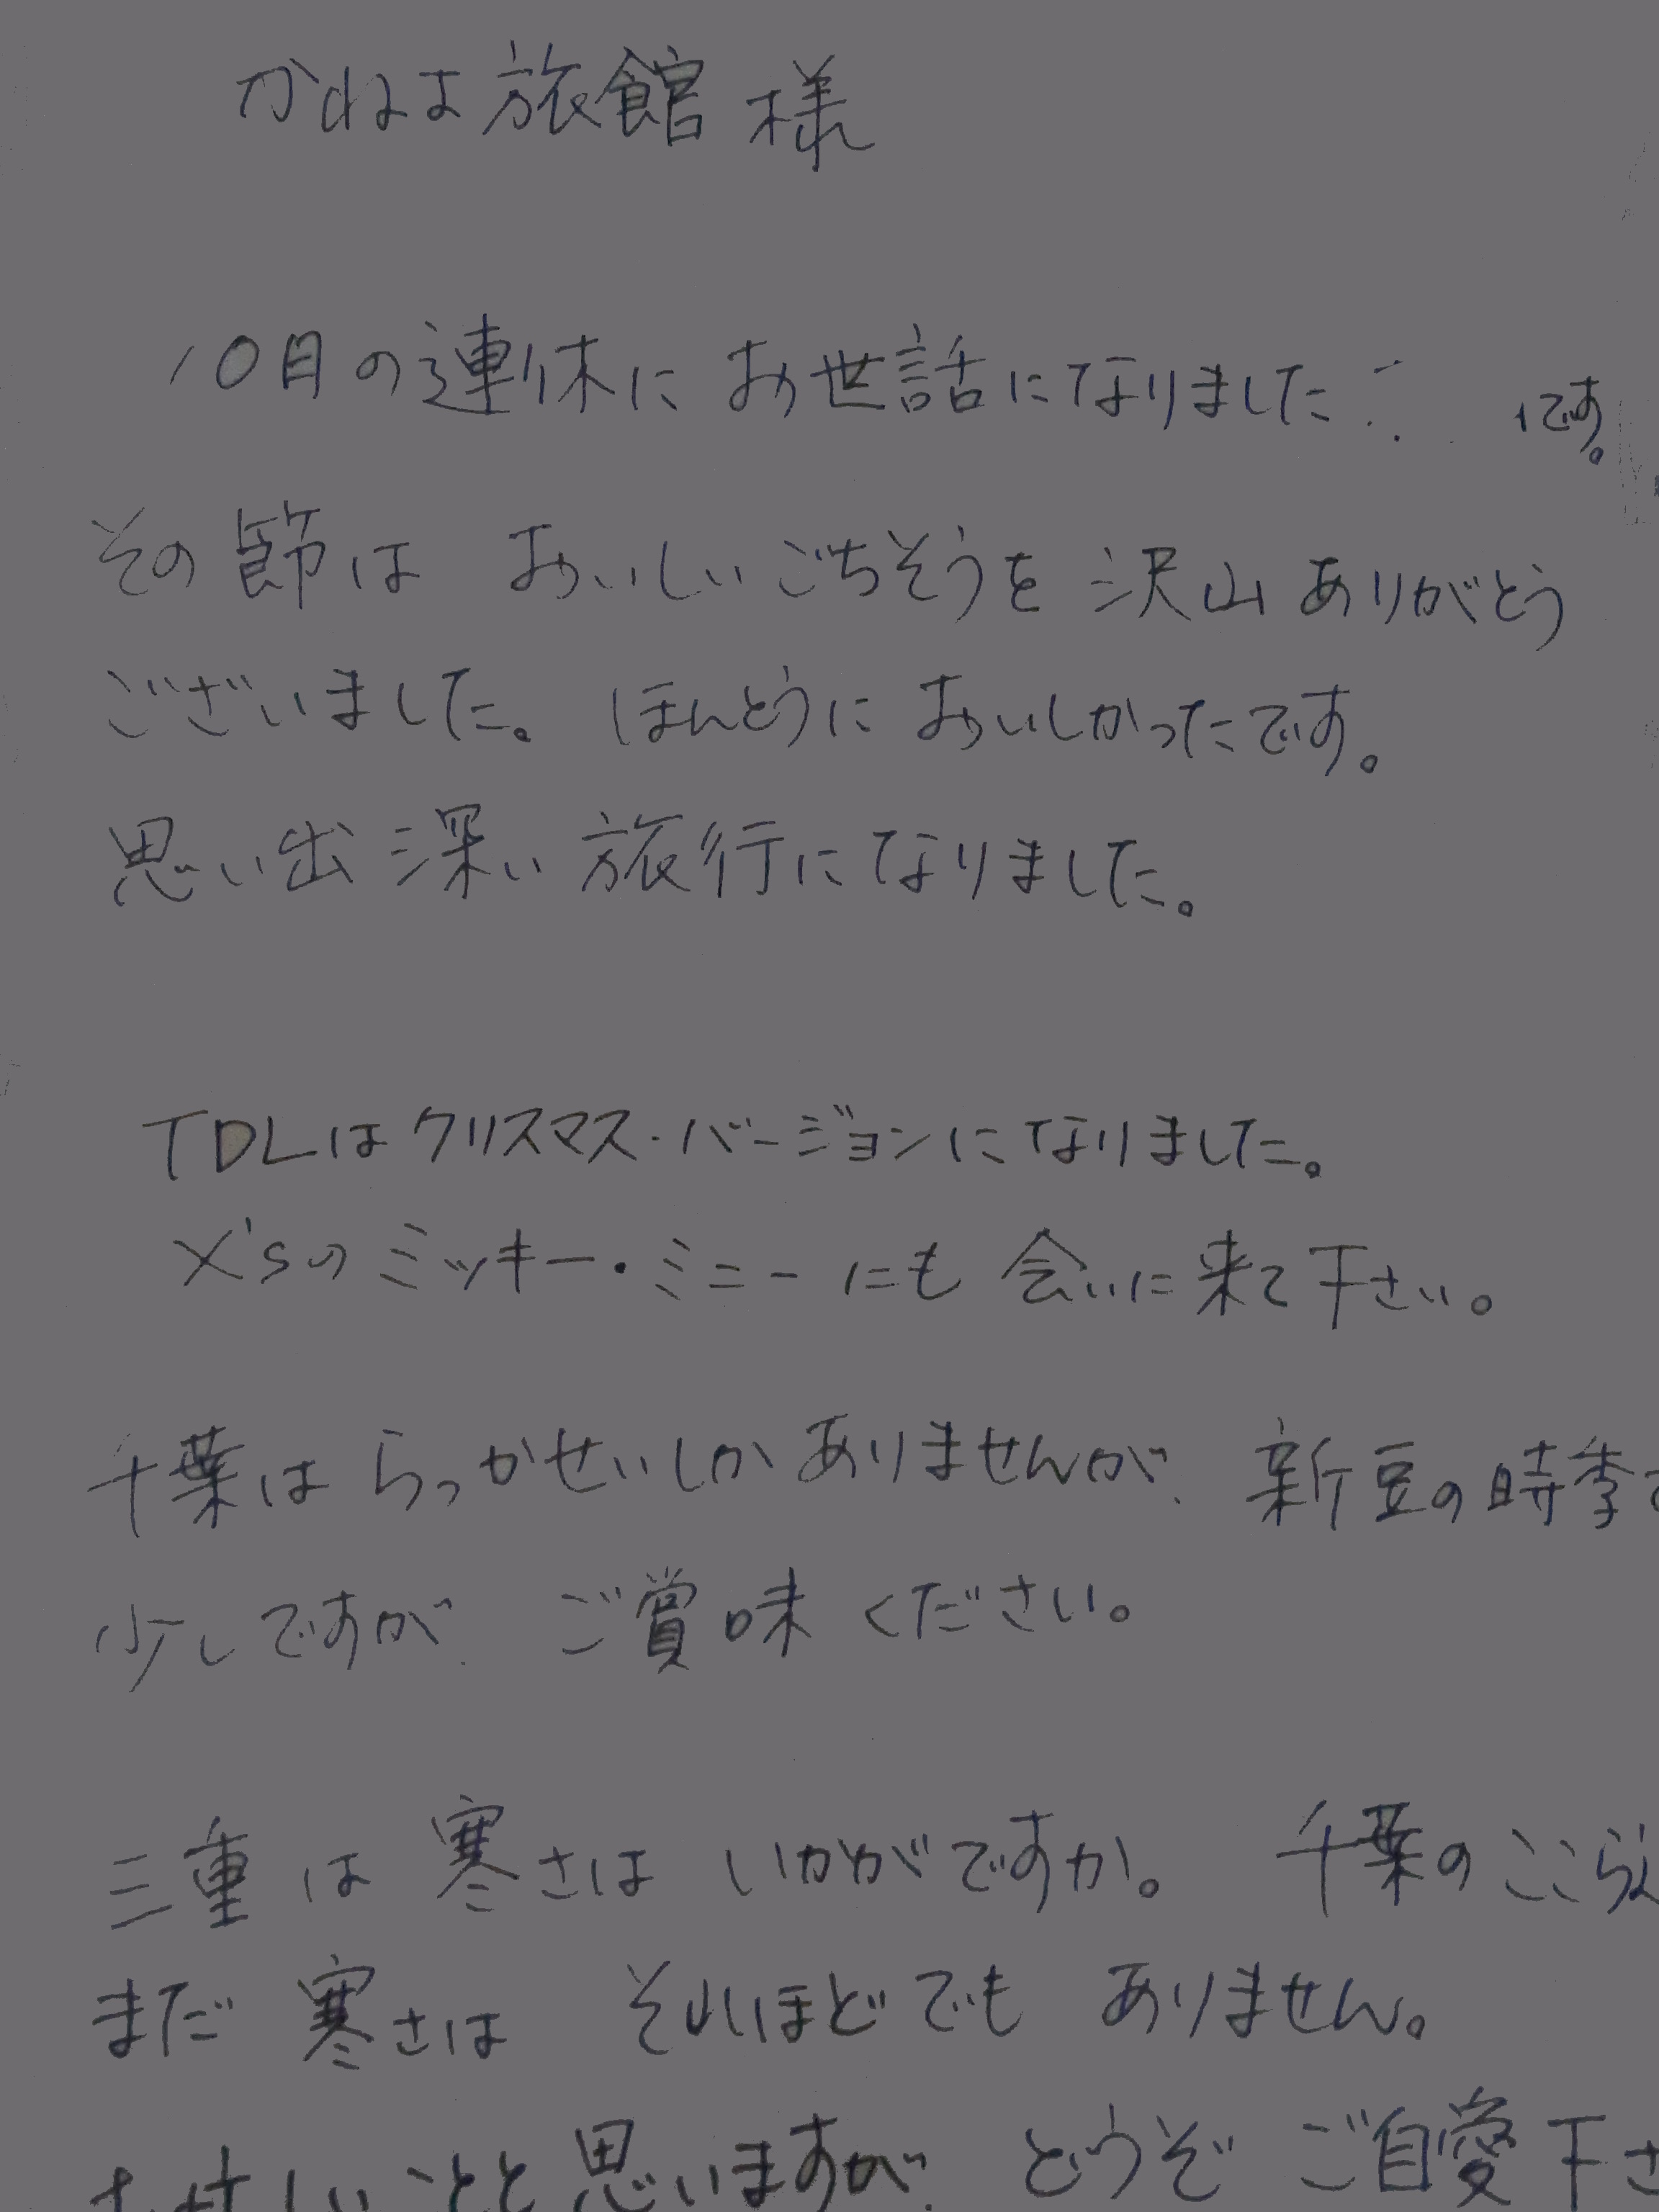 かねよ旅館 様
10月の連休に お世話になりました です。
その節は おいしいごちそうを 沢山 ありがとう
ございました。 ほんとうに おいしかったです。
思い出深い 旅行になりました。
TDLはクリスマス・バージョンになりました。
X'sのミッキー・ミニーにも 会いに来て下さい。
千葉は らっかせいしか ありませんが、新豆の時季
少しですが、 ご賞味ください。
三重は 寒さは いかがですか。 千葉の ここら
まだ 寒さは それほどでも ありません。
しいことと思いますが、 どうぞ ご自愛下さ